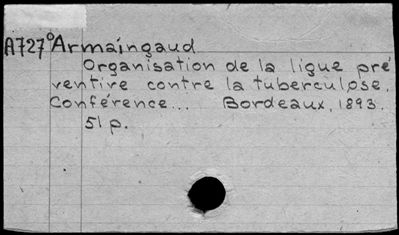 A727° Armaingaud
Organisation de la ligue pré
ventive contre la tuberculose.
Conférence... Bordeaux, 1893.
51 p.